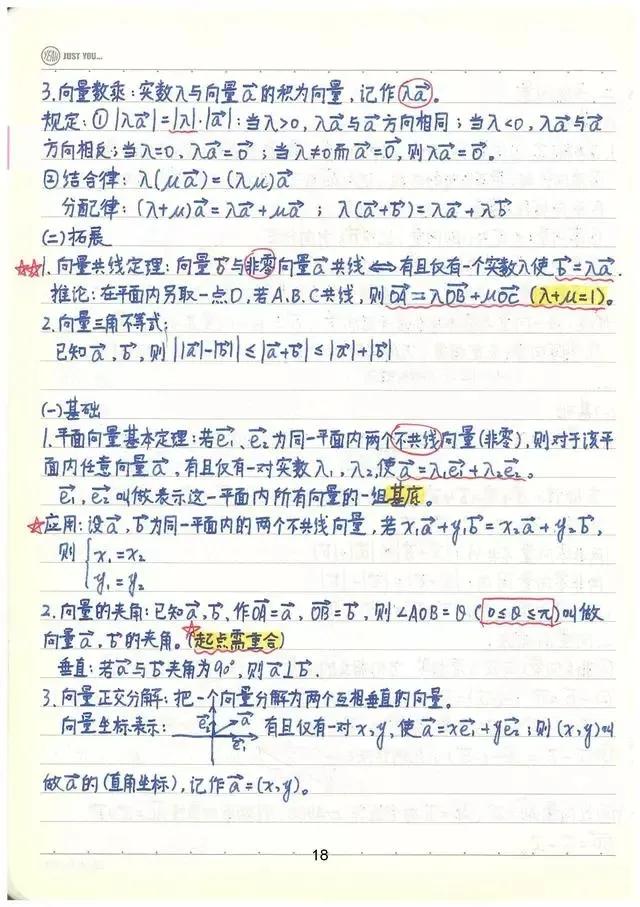 YEAH JUST YOU...
3.向量数乘:实数λ与向量a⃗的积为向量,记作λa⃗。
规定:①|λa⃗|=|λ|·|a⃗|:当λ>0,λa⃗与a⃗方向相同;当λ<0,λa⃗与a⃗
方向相反;当λ=0,λa⃗=0⃗;当λ≠0而a⃗=0⃗,则λa⃗=0⃗。
②结合律:λ(μa⃗)=(λμ)a⃗
分配律:(λ+μ)a⃗=λa⃗+μa⃗;λ(a⃗+b⃗)=λa⃗+λb⃗
(二)拓展
☆☆1.向量共线定理:向量b⃗与非零向量a⃗共线⇔有且仅有一个实数λ使b⃗=λa⃗.
推论:在平面内另取一点O,若A.B.C共线,则OA⃗=λOB⃗+μOC⃗(λ+μ=1)。
2.向量三角不等式:
已知a⃗,b⃗,则||a⃗|-|b⃗||≤|a⃗+b⃗|≤|a⃗|+|b⃗|
(一)基础
1.平面向量基本定理:若e₁⃗、e₂⃗为同一平面内两个不共线向量(非零),则对于该平
面内任意向量a⃗,有且仅有一对实数λ₁,λ₂,使a⃗=λ₁e₁⃗+λ₂e₂⃗。
e₁⃗,e₂⃗叫做表示这一平面内所有向量的一组基底。
☆应用:设a⃗,b⃗为同一平面内的两个不共线向量,若x₁a⃗+y₁b⃗=x₂a⃗+y₂b⃗,
则{x₁=x₂
y₁=y₂
2.向量的夹角:已知a⃗,b⃗,作OA⃗=a⃗,OB⃗=b⃗,则∠AOB=θ(0≤θ≤π)叫做
向量a⃗,b⃗的夹角。☆(起点需重合)
垂直:若a⃗与b⃗夹角为90°,则a⃗⊥b⃗.
3.向量正交分解:把一个向量分解为两个互相垂直的向量。
向量坐标表示: e₂⃗ a⃗ e₁⃗ 有且仅有一对x,y,使a⃗=xe₁⃗+ye₂⃗;则(x,y)叫
做a⃗的(直角坐标),记作a⃗=(x,y)。
18